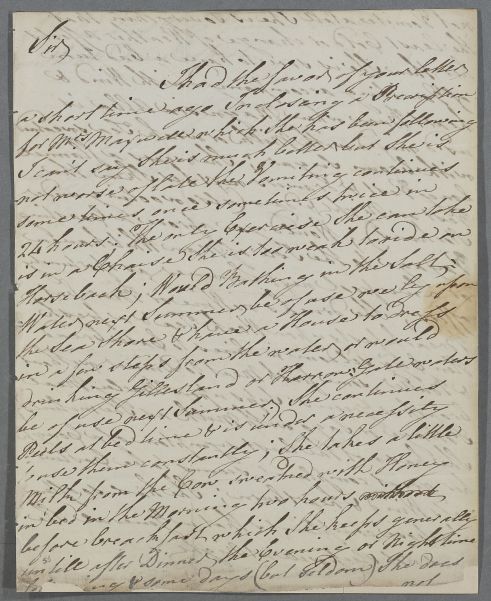 Sir,
I had the favor of your letter
a short time ago Inclosing a Prescription
for Mrs which She has been following
I cant say She is much better but She is
not worse of late the Vomiting continues
some times once sometimes twice in
24 hours. The only Exercise She can take
is in a Chaise She is too weak to ride on
Horseback; Would Bathing in the Salt-
Water next Summer be of use we ly upon
the Sea Shore & have a House to dress
in a few steps from the water, or would
drinking Gillesland or Harrow-Gate waters
be of use next Summer She continues
Pills at bed time & is under a necessity
use them constantly; She takes a little
Milk from the Cow sweetned with Honey
in bed in the Morning two hours
before breackfast which She keeps generally
untill after Dinner, the Evening or Night time
& some days (but seldom) She does
not